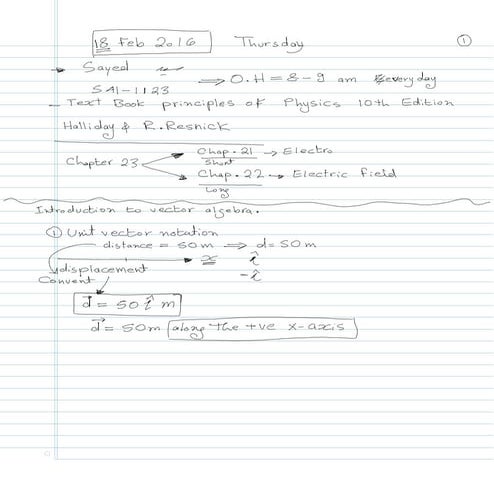 18 Feb 2016 Thursday ①
Sayed
SA1-1123 ⟹ O.H = 8-9 am everyday
- Text Book principles of Physics 10th Edition
Halliday & R.Resnick
Chap. 21 → Electro
Short
Chapter 23
Chap. 22 → Electric field
Long
Introduction to vector algebra.
① Unit vector notation
distance = 50m ⟹ d=50m
x î
displacement -î
Convent
d⃗ = 50 î m
d⃗ = 50m along the +ve x-axis